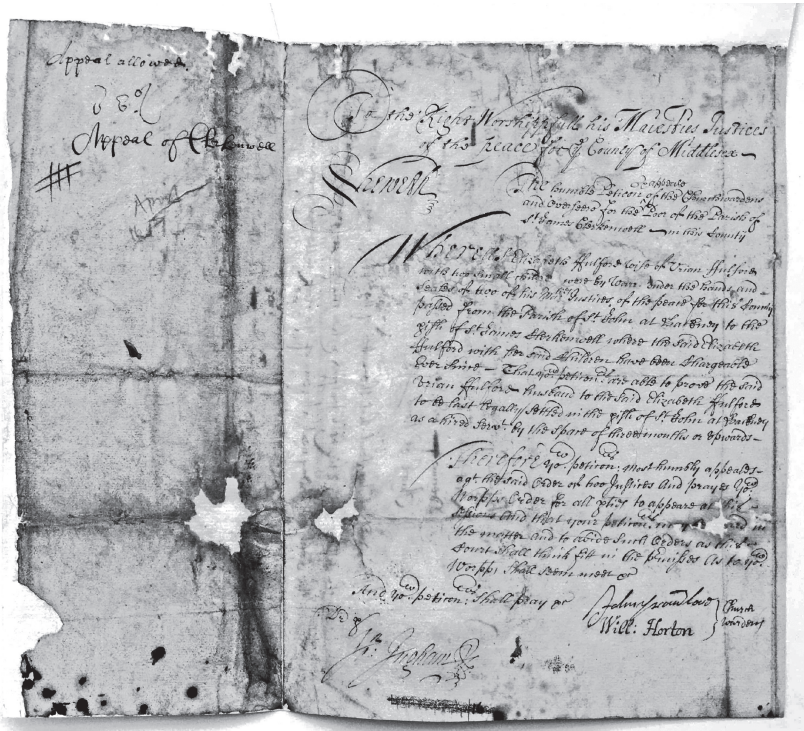 Appeal allowed.
Appeal of Clerkenwell
To the Right Worshippfull his Maiesties Justices
of the peace for ye County of Middlesex —
The humble Peticon & appeale of the Churchwardens
and Overseers for the Poor of the Parish of
St James Clerkenwell — in this County
Sheweth
Whereas Elizabeth Hulford wife of Brian Hulford
with two small children were by Warrt under the hands and
Seales of two of his Maties Justices of the peace for this County
passed from the Parish of St John at Hackney to the
pish of St James Clerkenwell where the said Elizabeth
Hulford with her said Children have been Chargeable
Ever since — That yor peticonrs are able to prove the said
Brian Hulford husband to the said Elizabeth Hulford
to be last Legally settled in the pish of St John at Hackney
as a hired Servt by the space of three months or upwards —
Therefore yor peticonrs most humbly appeales
agt the said Order of two Justices And prayes yor
Worpps Order for all pties to appeare at this
Sessions And that your peticonrs in
the matter and to abide such Orders as this
Court shall think fit in the pmisses As to yor
Worpps shall seem meet &c
And yor peticonrs shall pray &c
John
Will: Horton
Church
wardens
Ingham